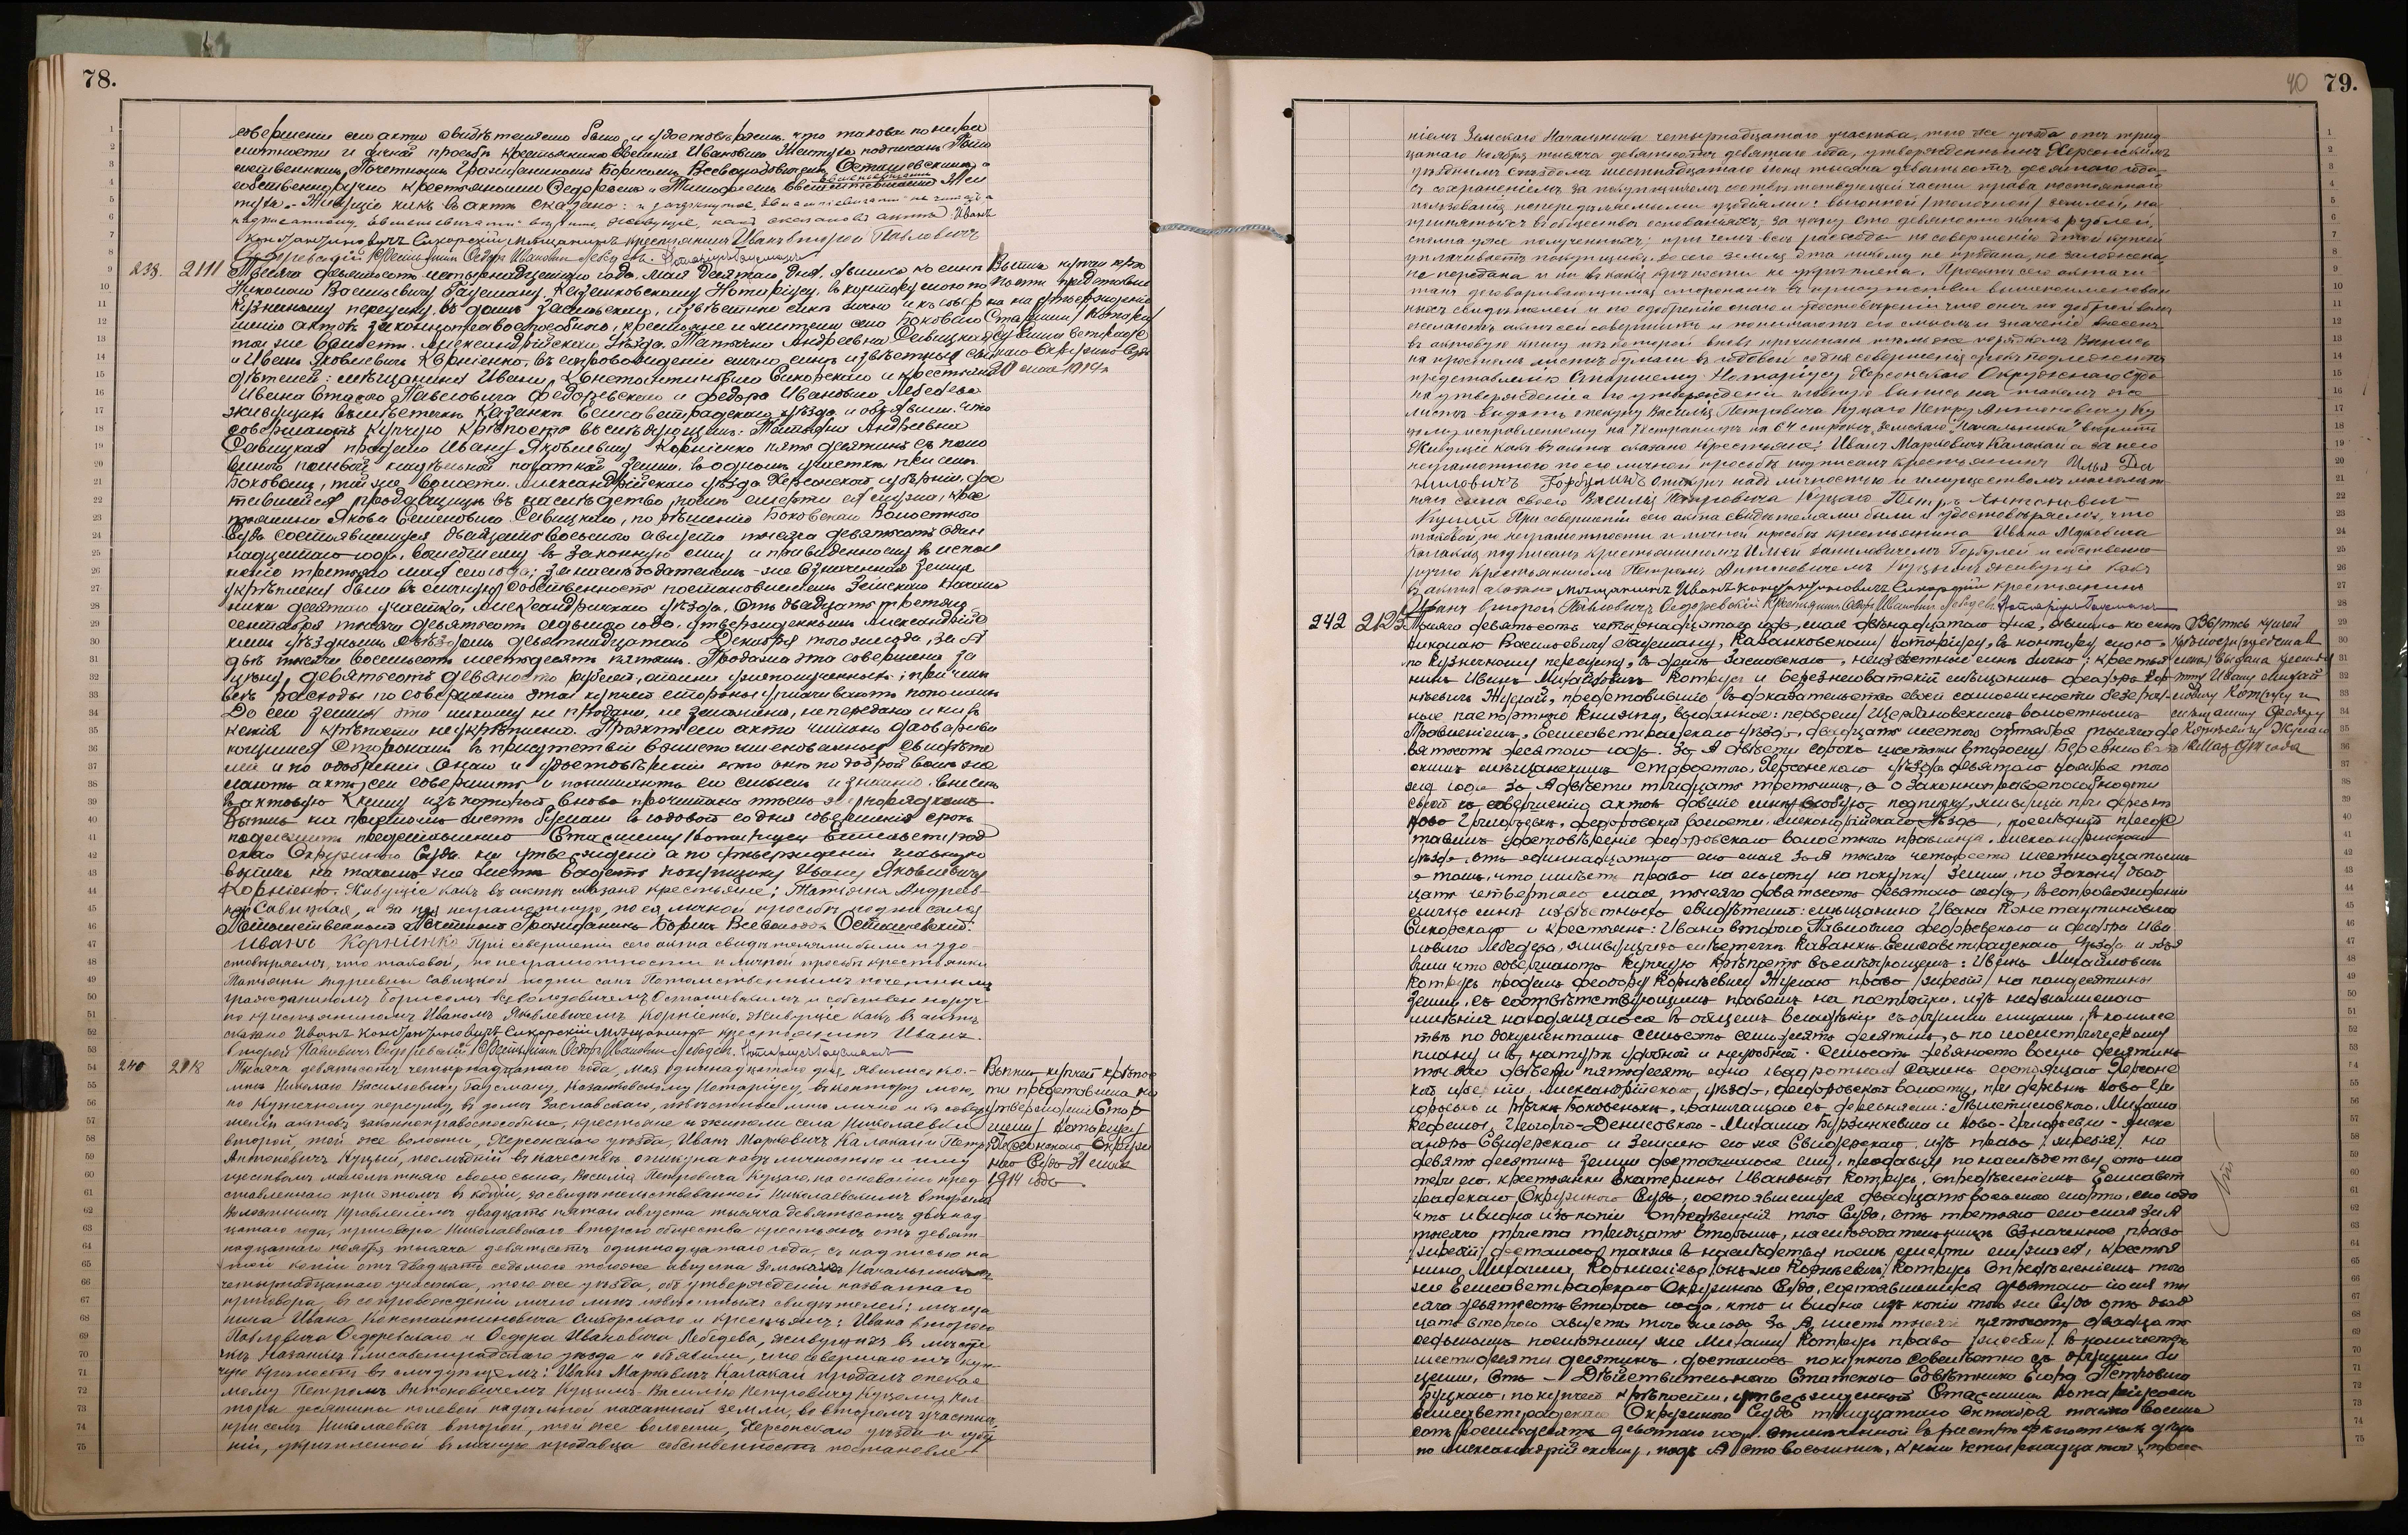 78.
совершении сего акта свидѣтелями были и удостовѣряемъ, что таковой по негра
мотности и личной просьбѣ крестьянина Евгенія Ивановича подписанъ Пото
мственнымъ Почетнымъ Гражданиномъ Борисомъ Всеволодовичемъ Осташевскимъ, а
собственноручно крестьяниномъ Федоромъ
Живущіе какъ въ актѣ сказано:
Иванъ
Константиновичъ Сикорскій мѣщанинъ крестьянинъ Иванъ второй Павловичъ
Федоревскій Крестьянинъ Федоръ Ивановичъ Лебедевъ. Нотаріусъ Гаусманъ
239. 2111 Тысяча девятьсотъ четырнадцатаго года, мая десятаго дня, явились ко мнѣ
Николаю Васильевичу Гаусману, Казанковскому Нотаріусу, въ контору мою по
Кузнечному переулку, въ домѣ Заславскаго, извѣстные мнѣ лично и къ совер
шенію актовъ законноправоспособные, крестьяне и жители села Боковаго
той же волости, Александрійскаго уѣзда, Татьяна Андреевна Савицкая
и Иванъ Яковлевичъ Корніенко, въ сопровожденіи лично мнѣ извѣстныхъ сви
дѣтелей: мѣщанина Ивана Константиновича Сикорскаго и крестьянъ
Ивана второго Павловича Федоревскаго и Федора Ивановича Лебедева
живущихъ въ мѣстечкѣ Казанкѣ Елисаветградскаго уѣзда и объявили, что
совершаютъ купчую крѣпость въ слѣдующемъ: Татьяна Андреевна
Савицкая продала Ивану Яковлевичу Корніенко пять десятинъ съ поло
виною полевой надѣльной пахатной земли, въ одномъ участкѣ при селѣ
Боковомъ, той же волости, Александрійскаго уѣзда Херсонской губерніи, дос
тавшейся продавщицѣ въ наслѣдство, послѣ смерти ея мужа, крес
тьянина Якова Семеновича Савицкаго, по рѣшенію Боковскаго Волостного
Суда состоявшемуся двадцать восьмого августа тысяча девятьсотъ один
надцатаго года, вошедшему въ законную силу и приведенному въ испол
неніе третьяго мая сего года; за наслѣдодателемъ же означенная земля
укрѣплена была въ личную собственность постановленіемъ Земскаго Началь
ника девятаго участка, Александрійскаго уѣзда, отъ двадцать третьяго
сентября тысяча девятьсотъ седьмого года, утвержденнымъ Александрійс
кимъ уѣзднымъ съѣздомъ девятнадцатаго Декабря того же года, за №
двѣ тысячи восемьсотъ шестьдесятъ пятымъ. Продажа эта совершена за
цѣну, девятьсотъ девяносто рублей, сполна уже полученныхъ; причемъ
всѣ расходы по совершенію этой купчей стороны уплачиваютъ пополамъ
До сего земля эта никому не продана, не заложена, не передана и ни въ
какія крѣпости не укрѣплена. Проэктъ сего акта читанъ договарива
ющимися Сторонами въ присутствіи вышепоименованныхъ свидѣте
лей и по одобреніи онаго и удостовѣреніи что они по доброй волѣ же
лаютъ актъ сей совершить и понимаютъ его смыслъ и значеніе, внесенъ
въ актовую Книгу изъ которой вновь прочитанъ тѣмъ же порядкомъ
Выпись на простомъ листѣ бумаги въ годовой со дня совершенія срокъ
подлежитъ представленію Старшему Нотаріусу Елисаветград
скаго Окружнаго Суда на утвержденіе а по утвержденіи главную
выпись на такомъ же листѣ выдать покупщику Ивану Яковлевичу
Корніенко. Живущіе какъ въ актѣ сказано крестьяне: Татьяна Андреев-
на Савицкая, а за нея неграмотную, по ея личной просьбѣ подписался
Потомственный Почетный Гражданинъ Борисъ Всеволодовъ Осташевскій.
Иванъ Корніенко При совершеніи сего акта свидѣтелями были и удо-
стовѣряемъ, что таковой, по неграмотности и личной просьбѣ крестьянки
Татьяны Андреевны Савицкой подписанъ Потомственнымъ почетнымъ
гражданиномъ Борисомъ Всеволодовичемъ Осташевскимъ и собственноруч-
но крестьяниномъ Иваномъ Яковлевичемъ Корніенко. Живущіе какъ въ актѣ
сказано Иванъ Константиновичъ Сикорскій мѣщанинъ крестьянинъ Иванъ
второй Павловичъ Федоревскій Крестьянинъ Федоръ Ивановичъ Лебедевъ. Нотаріусъ Гаусманъ
Выпись купчей крѣ
пости представле
на на утвержденіе
Старшему Нотарі
усу Елисаветградс
каго Окружнаго Суда
20 мая 1914 г.
240 2118 Тысяча девятьсотъ четырнадцатаго года, мая одиннадцатаго дня, явились ко-
мнѣ Николаю Васильевичу Гаусману, Казанковскому Нотаріусу, въ контору мою,
по Кузнечному переулку, въ домѣ Заславскаго, извѣстные мнѣ лично и къ совер
шенію актовъ законноправоспособные, крестьяне и жители села Николаевки
второй, той же волости, Херсонскаго уѣзда, Иванъ Марковичъ Калакай и Петръ
Антоновичъ Куцый, послѣдній въ качествѣ опекуна надъ личностью и иму
ществомъ малолѣтняго своего сына, Василія Петровича Куцаго, на основаніи пред
ставленнаго при этомъ въ копіи, засвидѣтельствованной Николаевскимъ вторымъ
Волостнымъ Правленіемъ двадцать пятаго августа тысяча девятьсотъ двѣнад-
цатаго года, приговора Николаевскаго второго общества крестьянъ отъ девят-
надцатаго ноября тысяча девятьсотъ одиннадцатаго года, съ надписью на
той копіи отъ двадцать седьмого того же августа Земскаго Начальника
четырнадцатаго участка, того же уѣзда, объ утвержденіи названнаго
приговора, въ сопровожденіи лично мнѣ извѣстныхъ свидѣтелей: мѣща
нина Ивана Константиновича Сикорскаго и крестьянъ: Ивана второго
Павловича Федоревскаго и Федора Ивановича Лебедева, живущихъ въ мѣсте
чкѣ Казанкѣ Елисаветградскаго уѣзда и объявили, что совершаютъ куп-
чую крѣпость въ слѣдующемъ: Иванъ Марковичъ Калакай продалъ опекае
мому Петромъ Антоновичемъ Куцымъ-Василію Петровичу Куцому, пол-
торы десятины полевой надѣльной пахатной земли, во второмъ участкѣ,
при селѣ Николаевкѣ второй, той же волости, Херсонскаго уѣзда и губер
ніи, укрѣпленной въ личную продавца собственность постановле
Выпись купчей крѣпос
ти представлена на
утвержденіе Стар
шему Нотаріусу
Херсонскаго Окруж
наго Суда 31 мая
1914 года
40 79.
ніемъ Земскаго Начальника четырнадцатаго участка, того же уѣзда отъ трид-
цатаго ноября тысяча девятьсотъ девятаго года, утвержденнымъ Херсонскимъ
уѣзднымъ съѣздомъ шестнадцатаго іюня тысяча девятьсотъ десятаго года
съ сохраненіемъ за покупщикомъ соотвѣтствующей части права постояннаго
пользованія непередѣляемыми угодьями: выгонной /толочной/ землей, на
принятыхъ въ обществѣ основаніяхъ, за цѣну сто девяносто пять рублей,
сполна уже полученныхъ; при чемъ всѣ расходы по совершенію этой купчей
уплачиваетъ покупщикъ. До сего земля эта никому не продана, не заложена,
не передана и ни въ какія крѣпости не укрѣплена. Проэктъ сего акта чи
танъ договаривающимися сторонами въ присутствіи вышепоименован
ныхъ свидѣтелей и по одобреніи онаго и удостовѣреніи что они по доброй волѣ
желаютъ актъ сей совершить и понимаютъ его смыслъ и значеніе внесенъ
въ актовую книгу изъ которой вновь прочитанъ тѣмъ же порядкомъ Выпись
на простомъ листѣ бумаги въ годовой со дня совершенія срокъ подлежитъ
представленію Старшему Нотаріусу Херсонскаго Окружнаго Суда
на утвержденіе а по утвержденіи главную выпись на такомъ же
листѣ выдать опекуну Василія Петровича Куцаго Петру Антоновичу Ку
цому, исправленному на 78 страницѣ на 64 строкѣ „Земскаго Начальника" вѣрить
Живущіе какъ въ актѣ сказано крестьяне: Иванъ Марковичъ Калакай а за него
неграмотнаго по его личной просьбѣ подписался крестьянинъ Илья Да
ниловичъ Горбуля опекунъ надъ личностью и имуществомъ малолѣт
няго сына своего Василія Петровича Куцаго Петръ Антоновичъ
Куцый При совершеніи сего акта свидѣтелями были и удостовѣряемъ, что
таковой, по неграмотности и личной просьбѣ крестьянина Ивана Марковича
Калакая подписанъ крестьяниномъ Ильей Даниловичемъ Горбулей и собственно
ручно крестьяниномъ Петромъ Антоновичемъ Куцымъ живущіе какъ
въ актѣ сказано мѣщанинъ Иванъ Константиновичъ Сикорскій крестьянинъ
Иванъ второй Павловичъ Федоревскій Крестьянинъ Федоръ Ивановичъ Лебедевъ. Нотаріусъ Гаусманъ
242 2125 Тысяча девятьсотъ четырнадцатаго года, мая двѣнадцатаго дня, явились ко мнѣ
Николаю Васильевичу Гаусману, Казанковскому нотаріусу, въ контору мою,
по Кузнечному переулку, въ домѣ Заславскаго, неизвѣстные мнѣ лично: крестья
нинъ Иванъ Михайловичъ Котрусъ и Березнеговатскій мѣщанинъ Федоръ Кор
нѣевичъ Жужай, представившіе въ доказательство своей самоличности безсроч
ныя паспортныя книжки, выданныя: первому Щербановскимъ волостнымъ
Правленіемъ, Елисаветградскаго уѣзда, двадцать шестого октября тысяча де
вятьсотъ десятаго года, за № двѣсти сорокъ шестымъ и второму Березнеговат
скимъ мѣщанскимъ Старостою, Херсонскаго уѣзда девятаго ноября того
же года за № двѣсти тридцать третьимъ, а о законноправоспособности
своей къ совершенію актовъ давшіе мнѣ особую подписку, живущіе при деревнѣ
Ново-Григорьевкѣ, Федоровской волости, Александрійскаго уѣзда, послѣдній предс
тавилъ удостовѣреніе Федоровскаго волостного правленія, Александрійскаго
уѣзда отъ одиннадцатаго сего мая за № тысяча четыреста шестнадцатымъ
о томъ, что имѣетъ право на льготу на покупку земли, по Закону двад
цать четвертаго мая тысяча девятьсотъ девятаго года, въ сопровожденіи
лично мнѣ извѣстныхъ свидѣтелей: мѣщанина Ивана Константиновича
Сикорскаго и крестьянъ: Ивана второго Павловича Федоревскаго и Федора Ива
новича Лебедева, живущихъ въ мѣстечкѣ Казанкѣ Елисаветградскаго уѣзда и объя
вили что совершаютъ купчую крѣпость въ слѣдующемъ: Иванъ Михайловичъ
Котрусъ продалъ Федору Корнѣевичу Жужаю право /жребій/ на полдесятины
земли, съ соотвѣтствующимъ правомъ на постройки, изъ недвижимаго
имѣнія находящагося въ общемъ владѣніи съ другими лицами, въ количес
твѣ по документамъ семьсотъ семьдесятъ десятинъ, а по геометрическому
плану и въ натурѣ удобной и неудобной семьсотъ девяносто восемь десятинъ
тысяча двѣсти пятьдесятъ одна квадратныхъ сажень состоящаго Херсонс
кой губерніи, Александрійскаго уѣзда, Федоровской волости, при деревнѣ Ново-Гри
горьевкѣ и рѣчкѣ Боковенькѣ, граничащаго съ деревнями:
Михаила Бурзинкевича и Ново-Григорьевки - Алекс
андра Свидерскаго и землею его же Свидерскаго, изъ права /жребія/ на
девять десятинъ земли доставшагося ему, продавцу по наслѣдству отъ ма
тери его, крестьянки Екатерины Ивановны Котрусъ, опредѣленіемъ Елисавет
градскаго Окружнаго Суда, состоявшемуся двадцать восьмого марта сего года
что и видно изъ копіи опредѣленія того Суда, отъ третьяго сего мая за №
тысяча триста тридцать вторымъ, наслѣдодательницѣ означенное право
/жребій/ досталось также въ наслѣдство послѣ смерти мужа ея, крестья
нина, Михаила Корніліева онъ же Корнѣевичъ Котрусъ Опредѣленіемъ того
же Елисаветградскаго Окружнаго Суда, состоявшимся девятаго іюля ты
сяча девятьсотъ второго года, что и видно изъ копіи того же Суда отъ двад
цать второго августа того же года за № шесть тысячъ пятьсотъ двадцать
седьмымъ послѣднему же Михаилу Котрусъ право /жребій/ въ количествѣ
шестидесяти десятинъ, досталось покупкою совмѣстно съ другими ли
цами, отъ Дѣйствительнаго Статскаго Совѣтника Егора Петровича
Буцкаго, по купчей крѣпости, утвержденной Старшимъ Нотаріусомъ
Елисаветградскаго Окружнаго Суда тридцатаго Октября тысяча восемь
сотъ восемьдесятъ девятаго года, отмѣченной въ реестрѣ крѣпостныхъ дѣлъ
по Александрійскому уѣзду, подъ № сто восьмымъ,
Выпись купчей
крѣпости представ
лена/ выдана крестья
нину Ивану Михай
ловичу Котрусу и
мѣщанину Федору
Корнѣевичу Жужаю
12 Мая 1914 года